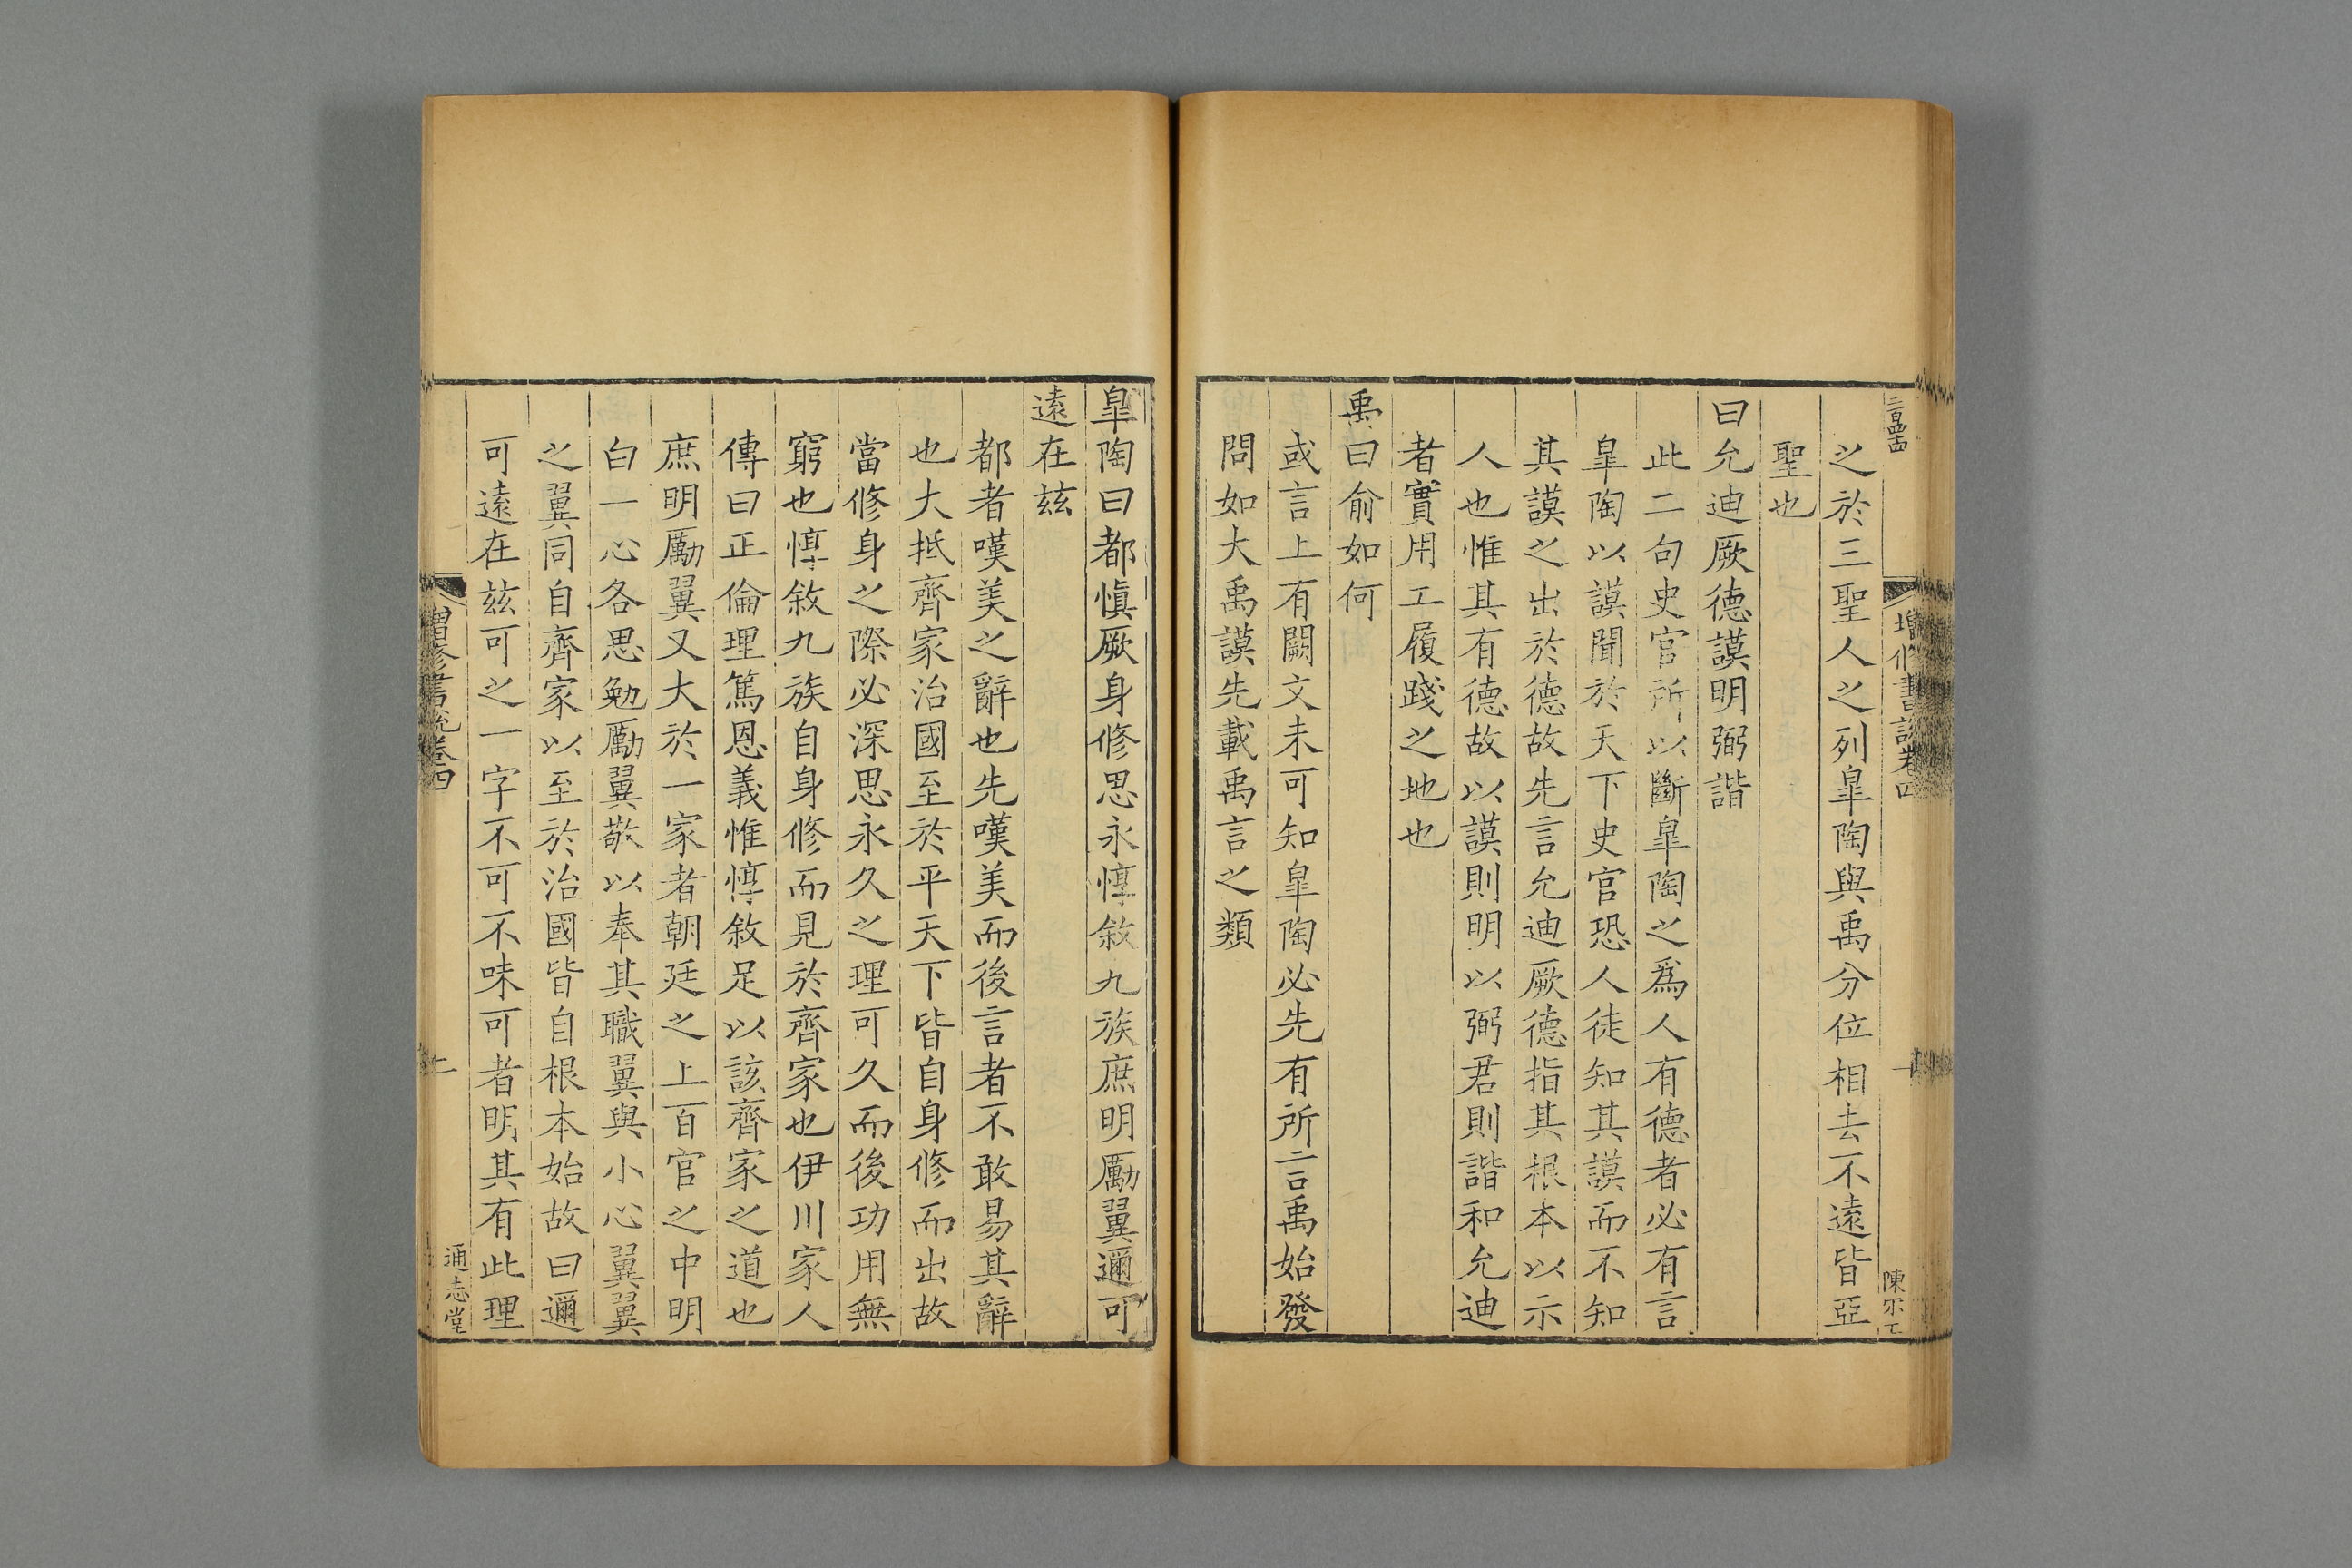 二百四十四
增修書說卷四
一
陳
之於三聖人之列臯陶與禹分位相去不遠皆亞
聖也
曰允迪厥德謨明弼諧
此二句史官所以斷臯陶之爲人有德者必有言
臯陶以謨聞於天下史官恐人徒知其謨而不知
其謨之出於德故先言允迪厥德指其根本以示
人也惟其有德故以謨則明以弼君則諧和允迪
者實用工履踐之地也
禹曰俞如何
或言上有闕文未可知臯陶必先有所言禹始發
問如大禹謨先載禹言之類
臯陶曰都愼厥身修思永惇敘九族庶明勵翼邇可
遠在茲
都者嘆美之辭也先嘆美而後言者不敢易其辭
也大抵齊家治國至於平天下皆自身修而出故
當修身之際必深思永久之理可久而後功用無
窮也惇敘九族自身修而見於齊家也伊川家人
傳曰正倫理篤恩義惟惇敘足以該齊家之道也
庶明勵翼又大於一家者朝廷之上百官之中明
白一心各思勉勵翼敬以奉其職翼與小心翼翼
之翼同自齊家以至於治國皆自根本始故曰邇
可遠在茲可之一字不可不味可者明其有此理
增修書說卷四
二
通志堂